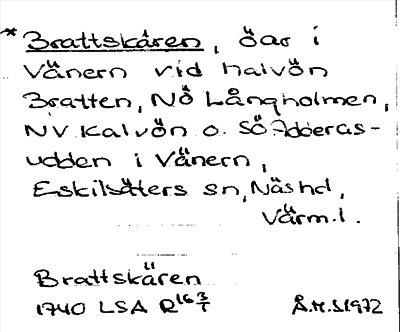 * Brattskären, öar i
Vänern vid halvön
Bratten, NÖ Långholmen,
NV Kalvön o. SÖ Adderas-
udden i Vänern,
Eskilsäters sn, Näs hd,
Värm.l.
Brattskären
1740 LSA R16 3/1
Å.H.S 1972